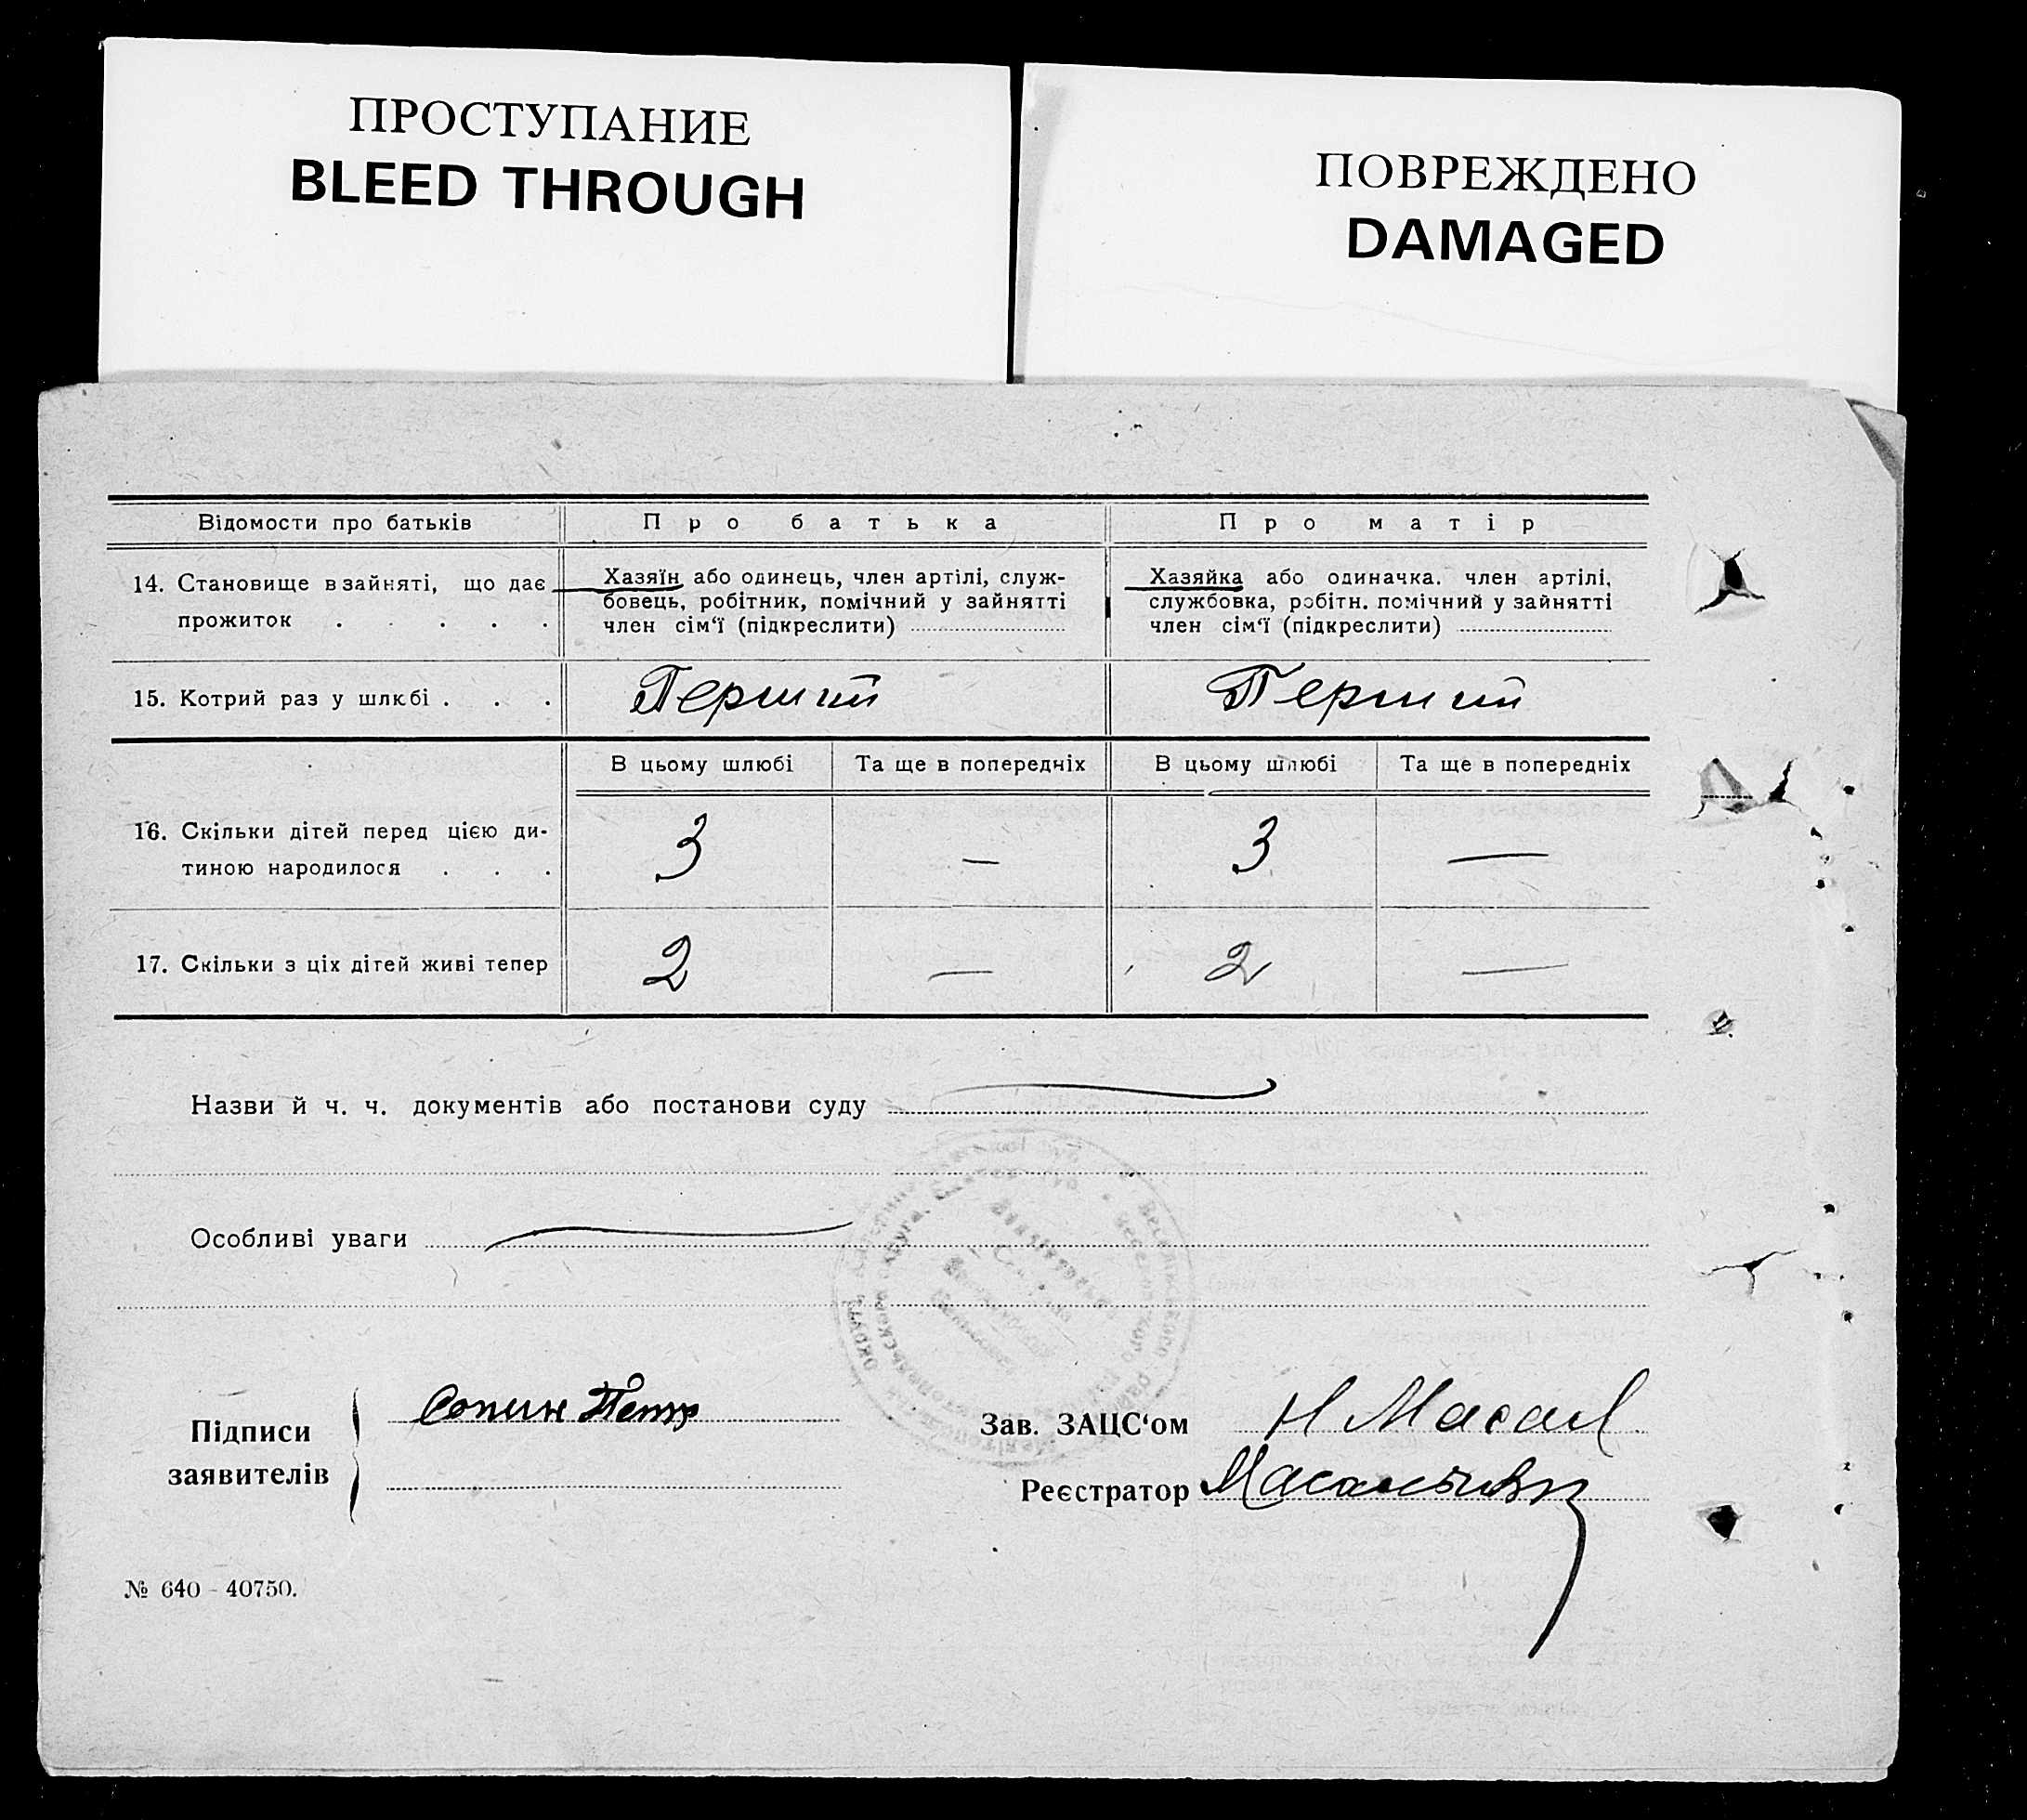 ПРОСТУПАНИЕ
BLEED THROUGH
ПОВРЕЖДЕНО
DAMAGED
Відомости про батьків
Про батька
Про матір
14. Становище в зайняті, що дає
прожиток . . . . .
Хазяїн або одинець, член артілі, служ-
бовець, робітник, помічний у зайнятті
член сім‘ї (підкреслити)
Хазяйка або одиначка. член артілі,
службовка, робітн. помічний у зайнятті
член сім‘ї (підкреслити)
15. Котрий раз у шлюбі . . .
Перший
Перший
В цьому шлюбі
Та ще в попередніх
В цьому шлюбі
Та ще в попередніх
16. Скільки дітей перед цією ди-
тиною народилося . . .
3
—
3
—
17. Скільки з ціх дітей живі тепер
2
—
2
—
Назви й ч. ч. документів або постанови суду
Особливі уваги
Підписи
заявителів
Сопин Петр
Зав. ЗАЦС‘ом
Н Масал
Реєстратор
№ 640 - 40750.